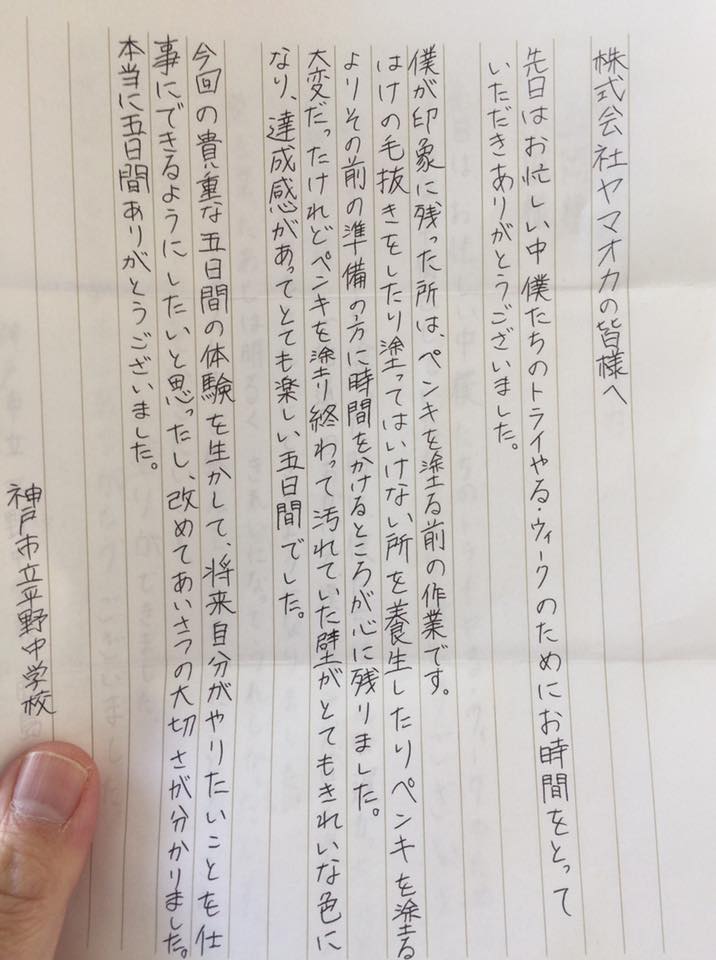 株式会社ヤマオカの皆様へ
先日はお忙しい中僕たちのトライやる・ウィークのためにお時間をとって
いただきありがとうございました。
僕が印象に残った所は、ペンキを塗る前の作業です。
はけの毛抜きをしたり塗ってはいけない所を養生したりペンキを塗る
よりその前の準備の方に時間をかけるところが心に残りました。
大変だったけれどペンキを塗り終わって汚れていた壁がとてもきれいな色に
なり、達成感があってとても楽しい五日間でした。
今回の貴重な五日間の体験を生かして、将来自分がやりたいことを仕
事にできるようにしたいと思ったし、改めてあいさつの大切さが分かりました。
本当に五日間ありがとうございました。
神戸市立平野中学校